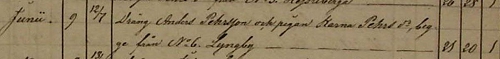 Junii. 9 12/7 Dräng Anders Pehrsson och pigan Harna Pehrs dr, beg-
ge från No 6. Lyngby — 25 20 1